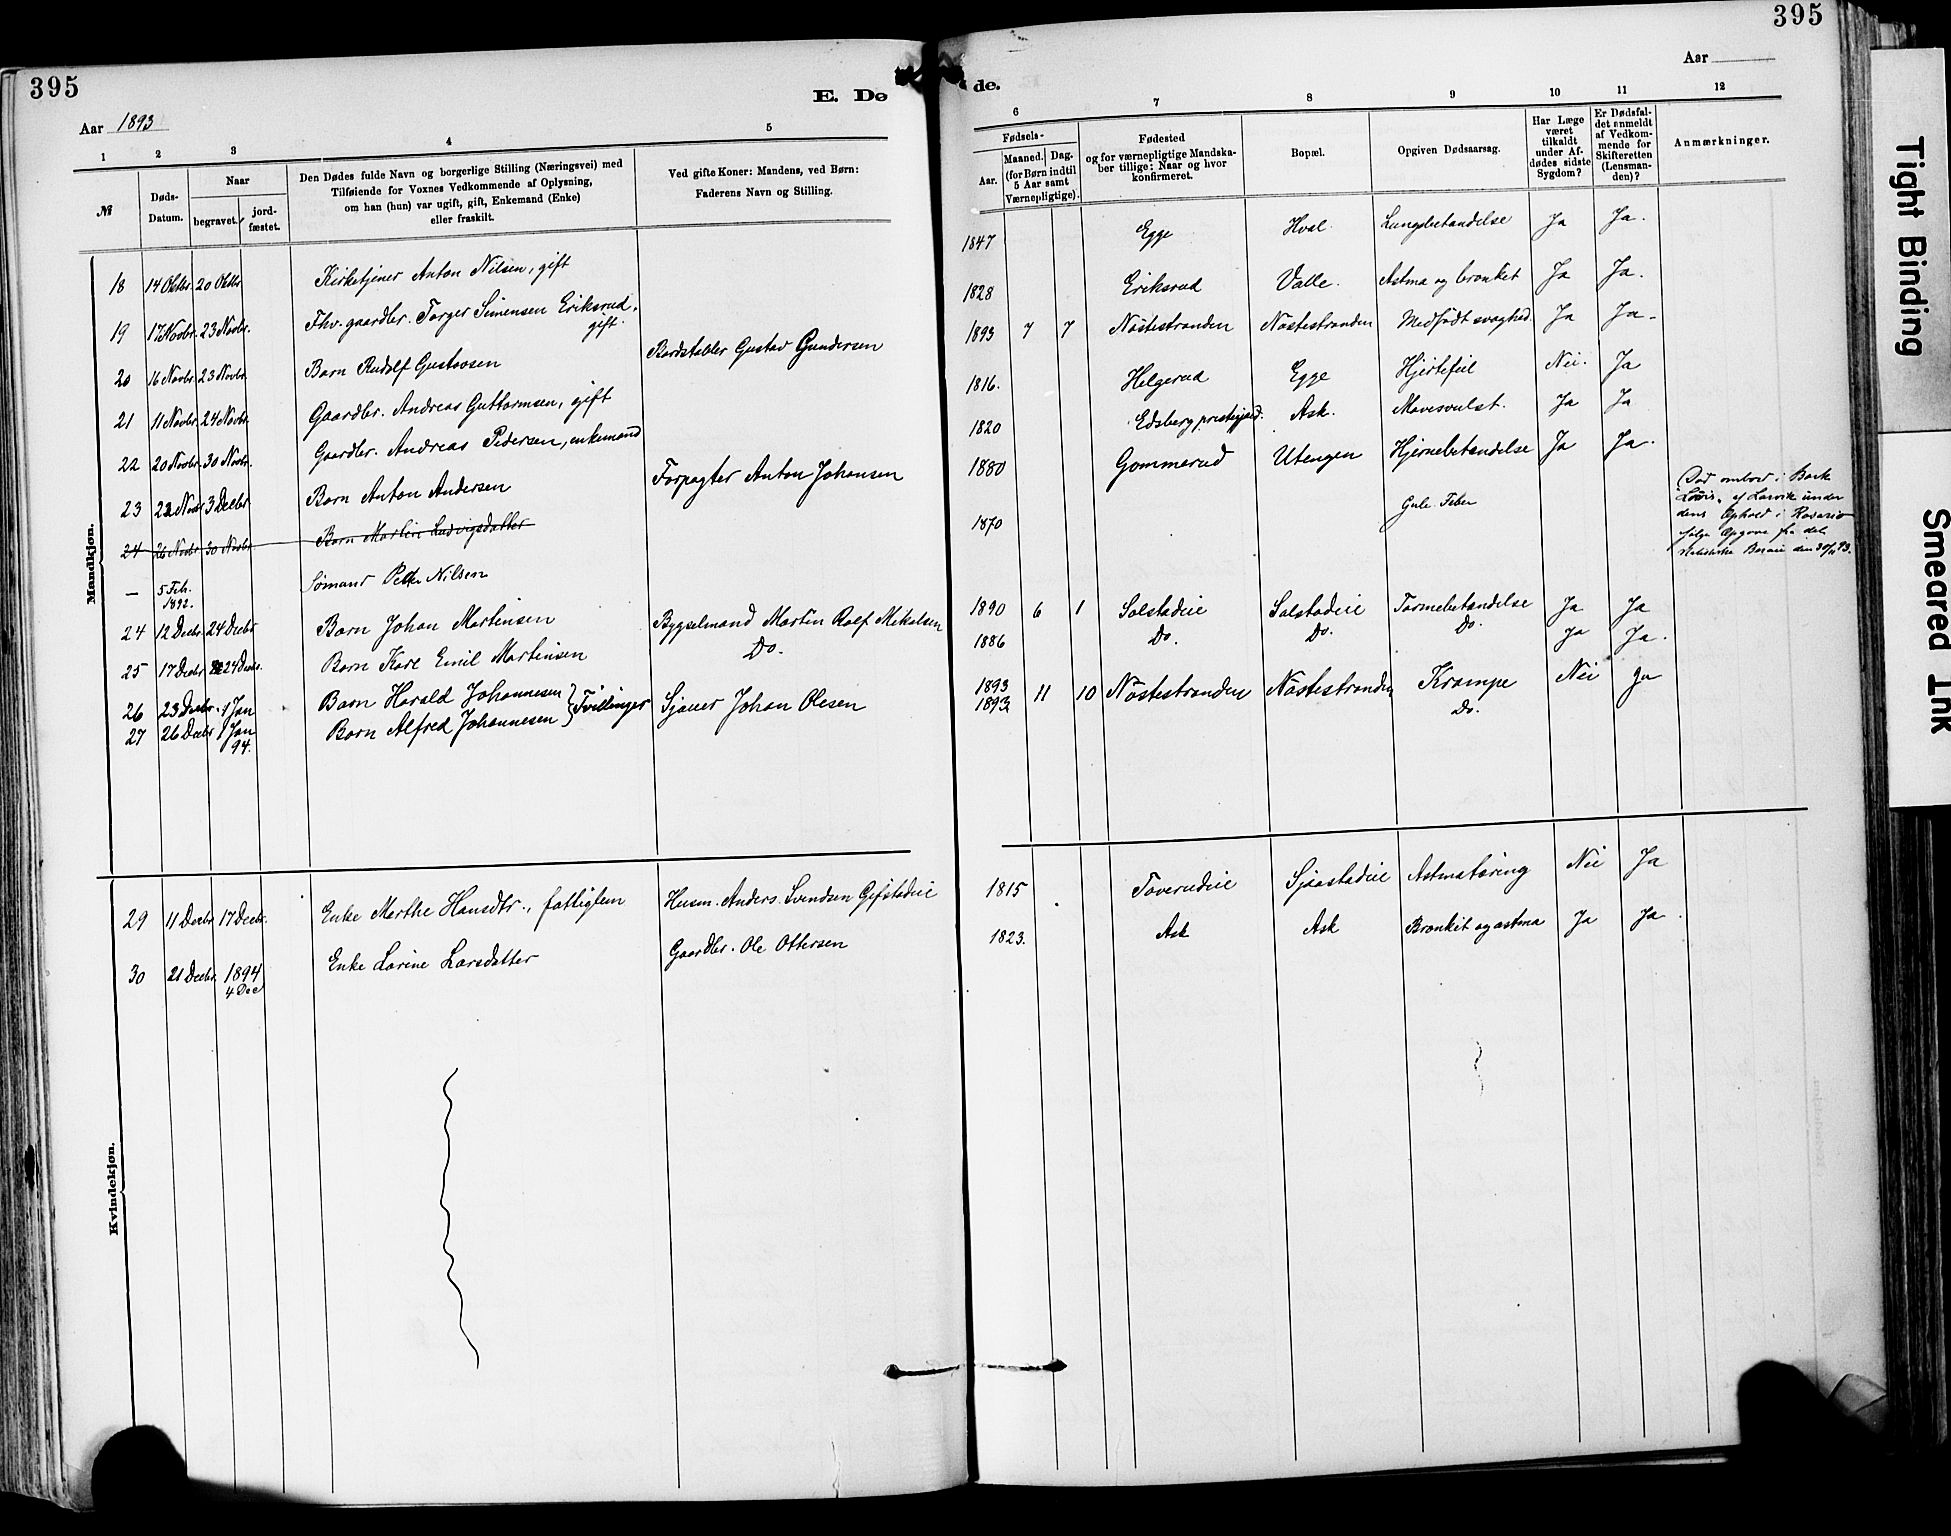 395
E. Dø
Aar 1893
1 2 3 4 5
№
Døds-
Datum.
Naar
begravet.
jord-
fæstet.
Den Dødes fulde Navn og borgerlige Stilling (Næringsvei) med
Tilføiende for Voxnes Vedkommende af Oplysning,
om han (hun) var ugift, gift, Enkemand (Enke)
eller fraskilt.
Ved gifte Koner: Mandens, ved Børn:
Faderens Navn og Stilling.
Mandkjøn.
18 14 Oktbr. 20 Oktbr Kirketjener Anton Nilsen, gift
19 17 Novbr. 23 Novbr. Fhv. gaardbr. Torger Simensen Eriksrud,
gift.
20 16 Novbr. 23 Novbr. Barn Rudolf Gustavsen Gustav Gundersen
21 11 Novbr. 24 Novbr. Gaardbr. Andreas Guttormsen, gift
22 20 Novbr. 30 Novbr. Gaardbr. Andreas Pedersen, enkemand
23 22 Nov 3 Decbr. Barn Anton Andersen Forpagter Anton Johansen
24 26 Novbr. 30 Novbr. Barn Martin Ludvigsdatter
— 5 Feb. Sømand Petter Nilsen
1892.
24 12 Decbr. 24 Decbr Barn Johan Martinsen Bygselmand Martin Rolf Mikelsen
25 17 Decbr 24 Decbr. Barn Karl Emil Martinsen Do.
26 23 Decbr. 1 Jan Barn Harald Johannesen } Tvillinger Sjauer Johan Olesen
27 26 Decbr 1 Jan Barn Alfred Johannesen
94.
Kvindekjøn.
29 11 Decbr 17 Decbr. Enke Marthe Hansdtr., fattiglem Husm. Anders Svendsen Gifstadeie
30 21 Decbr. 1894 Enke Larine Larsdatter Gaardbr. Ole Ottersen
4 Dec
395
de.
Aar
6 7 8 9 10 11 12
Fødsels-
Aar.
Maaned. Dag.
(for Børn indtil
5 Aar samt
Værnepligtige).
Fødested
og for værnepligtige Mandska-
ber tillige: Naar og hvor
konfirmeret.
Bopæl.
Opgiven Dødsaarsag.
Har Læge
været
tilkaldt
under Af-
dødes sidste
Sygdom?
Er Dødsfal-
det anmeldt
af Vedkom-
mende for
Skifteretten
(Lensman-
den)?
Anmærkninger.
1847 Egge Hval. Lungebetændelse Ja Ja.
1828 Eriksrud Valle. Astma og bronkit Ja Ja.
1893 7 7 Nøstestranden Nøstestranden Medfødt svaghed. Ja Ja.
1816. Helgerud Egge Hjertefeil Nei. Ja
1820 Edsberg prestegjæld. Ask. Mavesvulst. Ja Ja
1880 Gommerud Utengen Hjernebetændelse Ja Ja.
1870 Gule Feber
Død ombord i Bark
"Lovis" af Larvik under
dens Ophold i Rosario
ifølge Opgave fra det
statistiske Bureau den 30/11 93.
1890 6 1 Solstadeie Solstadeie Tarmebetændelse Ja Ja
1886 Do. Do. Do. Ja Ja.
1893 11 10 Nøstestranden Nøstestranden Krampe Nei Ja
1893 Do.
1815 Toverudeie Sjaastadeie Astmatæring Nei Ja
1823. Ask Ask Bronkit og astma Ja Ja.
Tight Binding
Smeared Ink